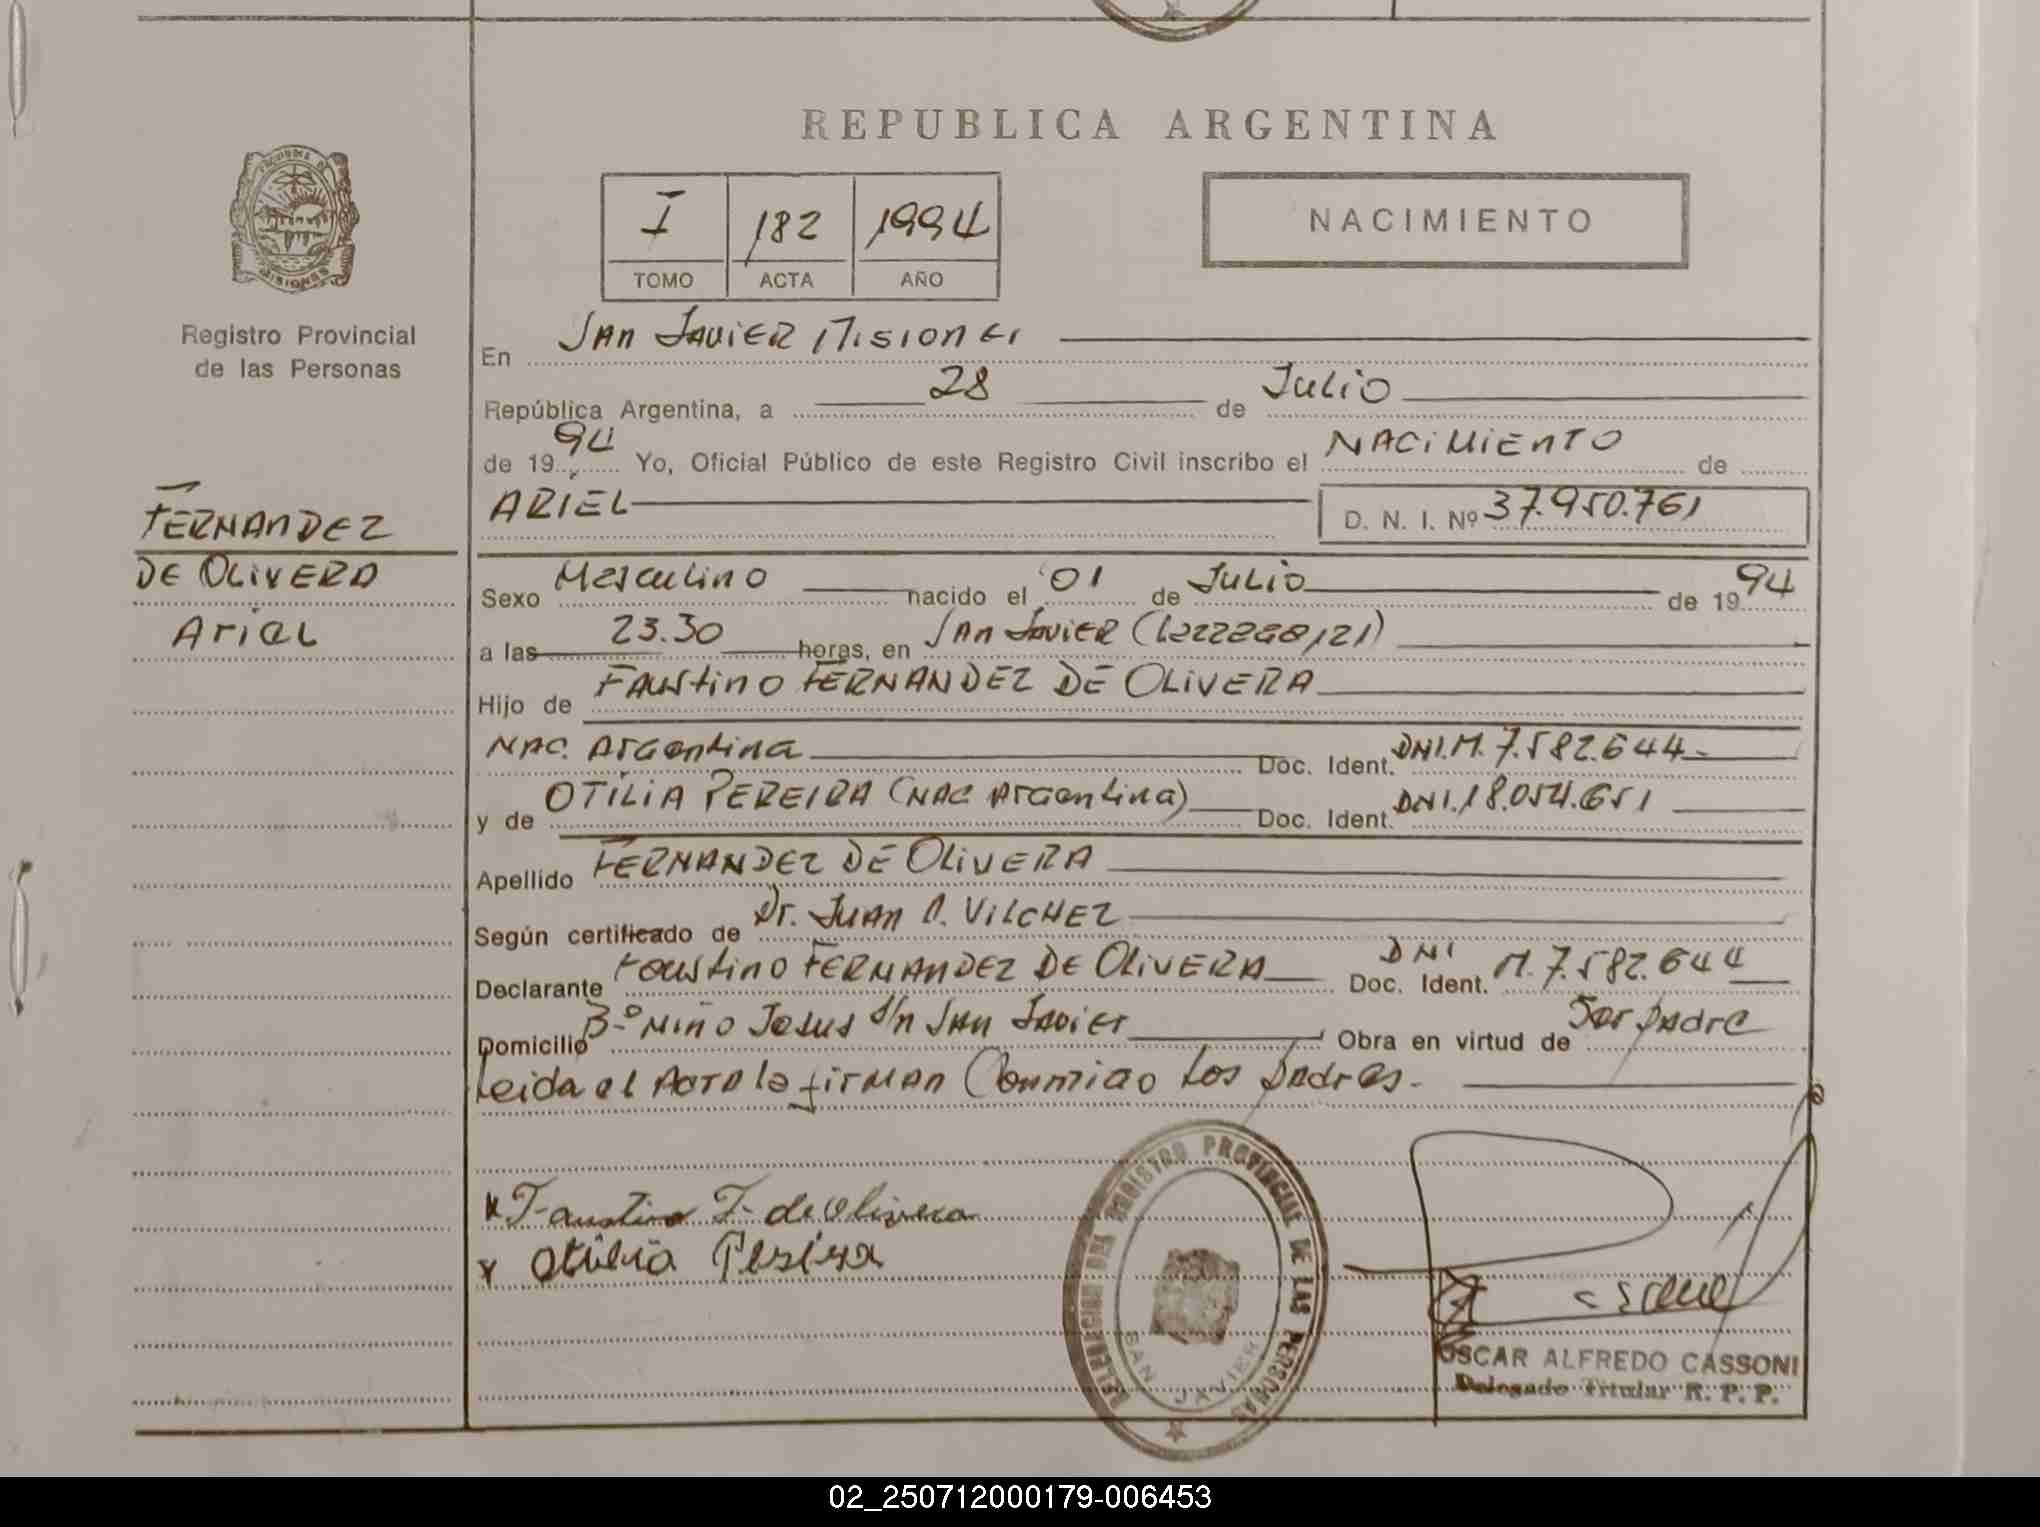 REPUBLICA ARGENTINA
PROVINCIA DE MISIONES
I 182 1994
TOMO ACTA AÑO
NACIMIENTO
Registro Provincial
de las Personas
FERNANDEZ
DE OLIVERA
Ariel
En San Javier Misiones
República Argentina, a 28 de Julio
de 1994 Yo, Oficial Público de este Registro Civil inscribo el NACIMIENTO de
ARIEL D. N. I. Nº 37.950.761
Sexo Masculino nacido el 01 de Julio de 1994
a las 23.30 horas, en San Javier
Hijo de Faustino FERNANDEZ DE OLIVERA
NAC. Argentina Doc. Ident. DNI.M. 7.582.644-
y de OTILIA PEREIRA (NAC Argentina) Doc. Ident. DNI.18.054.651
Apellido FERNANDEZ DE OLIVERA
Según certificado de Dr. JUAN C. VILCHEZ
Declarante Faustino FERNANDEZ DE OLIVERA Doc. Ident. DNI M. 7.582.644
Domicilio Bº Niño Jesus S/n San Javier Obra en virtud de Ser padre
Leida el Acta la firman Conmigo Los padres.
x Faustino F. de Olivera
x Otilia Pereira
DELEGACION DEL REGISTRO PROVINCIAL DE LAS PERSONAS
SAN JAVIER
OSCAR ALFREDO CASSONI
Delegado Titular R. P. P.
02_250712000179-006453